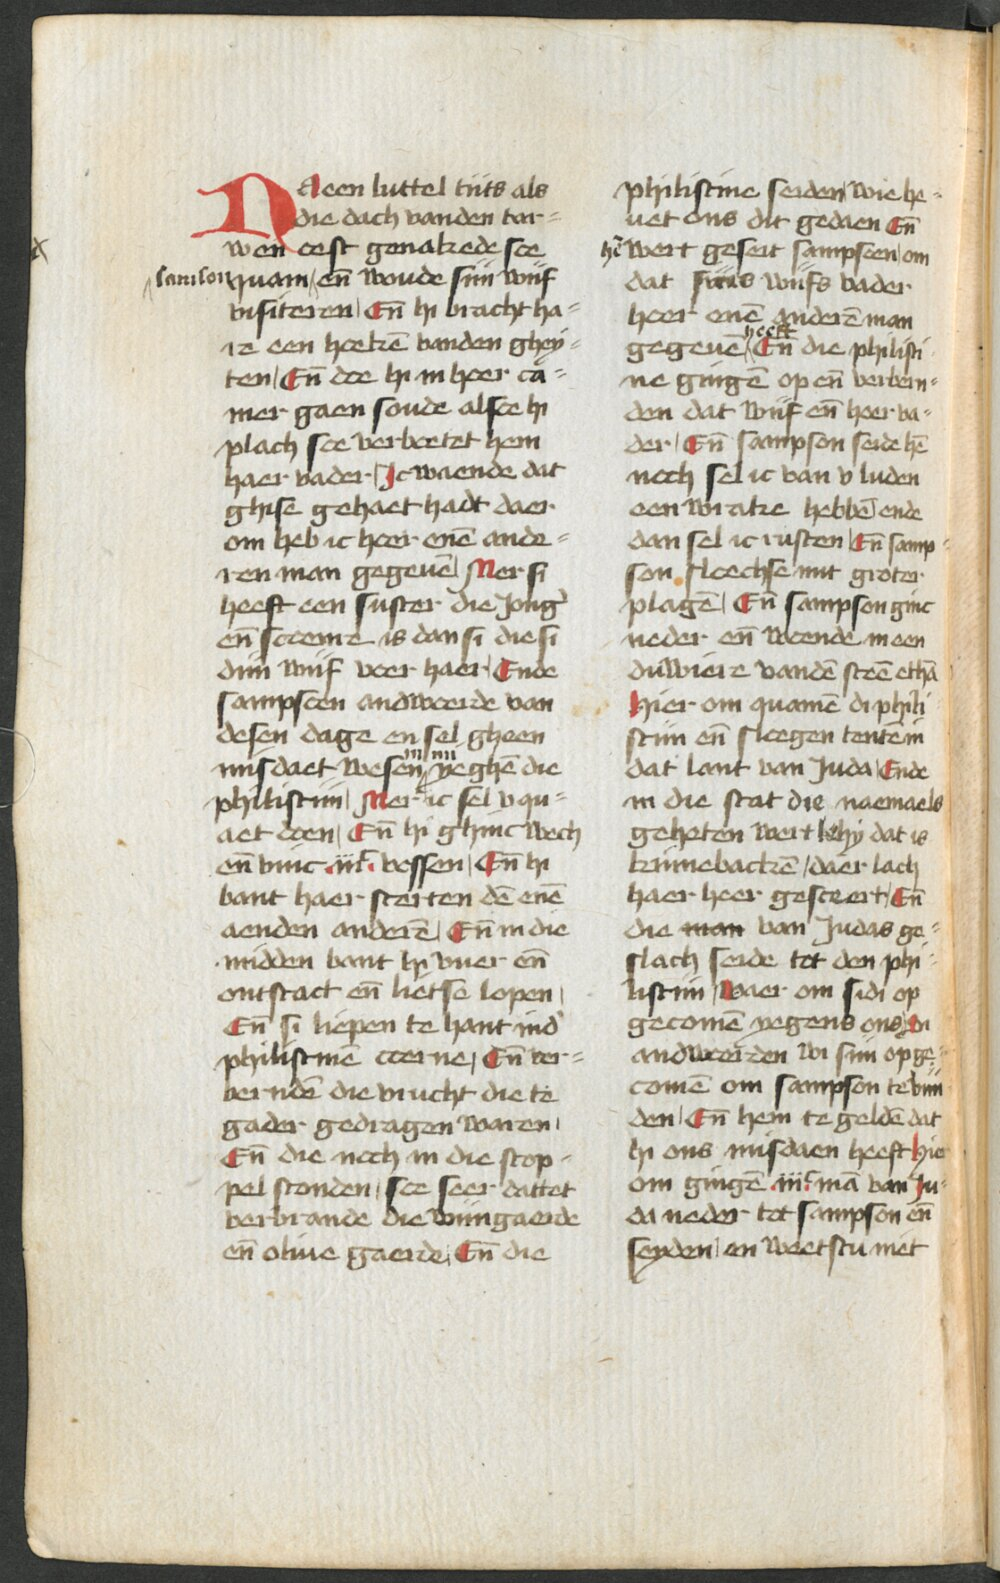 NAeen luttel tiits als
die dach vanden tar=
wen oest genakede soe
samson quam / en̄ woude siin wiif
visiteren / En̄ hi bracht ha=
re een hoekē vanden ghey=
ten / En̄ doe hi in hoer ca=
mer gaen soude alsoe hi
plach soe verboetet hem
haer vader / Ic waende dat
ghise gehaet hadt daer
om heb ic hoer enē ande=
ren man gegeuē / Mer si
heeft een suster die Jong̉
en̄ scoenre is dan si die si
diin wiif voer haer / Ende
sampsoen andwoerde van
desen dage en sel gheen
misdaet wesen in mi yeghē die
philistiin / Mer ic sel v qu=
aet doen / En̄ hi ghinc wech
en̄ vinc .iiic. vossen / En̄ hi
bant haer sterten dē enē
aenden anderē / En̄ in die
midden bant hi vuer en̄
ontstact en̄ lietse lopen /
En̄ si liepen te hant ind̉
philistinē coerne / En̄ ver=
berndē die vrucht die te
gader gedragen waren /
En̄ die noch in die stop=
pel stonden / soe seer dattet
verbrande die wiingaerde
en̄ oliue gaerde / En̄ die
philistine seiden / wie he=
uet ons dit gedaen En̄
hē wert geseit sampsoen / om
dat siins wiifs vader
hoer enē anderē man
gegeuē heeft / En̄ die philisti
ne gingē op en̄ verbern=
den dat wiif en̄ hoer va=
der / En̄ sampson seide hē
noch sel ic van v luden
een wrake hebbē / ende
dan sel ic rusten / En̄ samp=
son sloechse mit groter
plagē / En̄ sampson ginc
neder en̄ woende in een
duwiere vandē steē ethā
Hier om quamē di phili
stiin en̄ sloegen tentē in
dat lant van Juda / Ende
in die stat die naemaels
geheten wert lehy dat is
kinnebackē / daer lach
haer heer gestoert / En̄
die man van Judas ge=
slach seide tot den phi=
listiin / Waer om sidi op
gecomē yegens ons / Si
andwoerden wi siin opge=
comē om sampson te viin
den / En̄ hem te geldē dat
hi ons misdaen heeft hier
om gingē .iiiᴹ. mā van Ju=
da neder tot sampson en̄
seyden / en weetstu niet